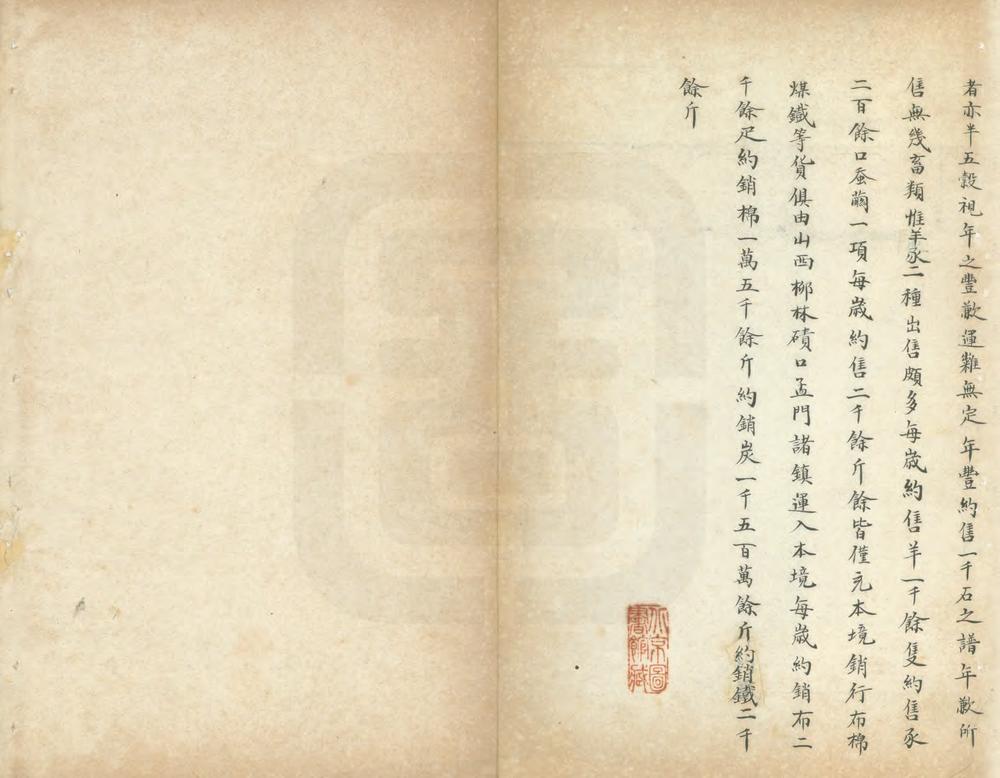 者亦半五穀視年之豐歉運糶無定年豐約售一千石之譜年歉所
售無幾畜類惟羊豕二種出售頗多每歲約售羊一千餘隻約售豕
二百餘口蚕繭一項每歲約售二千餘斤餘皆僅充本境銷行布棉
煤鐵等貨俱由山西柳林磧口孟門諸鎮運入本境每歲約銷布二
千餘疋約銷棉一萬五千餘斤約銷炭一千五百萬餘斤約銷鐵二千
餘斤
北京圖
書館藏